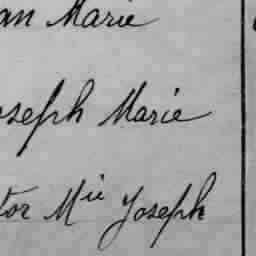 an Marie
oseph Marie
tor Mie Joseph